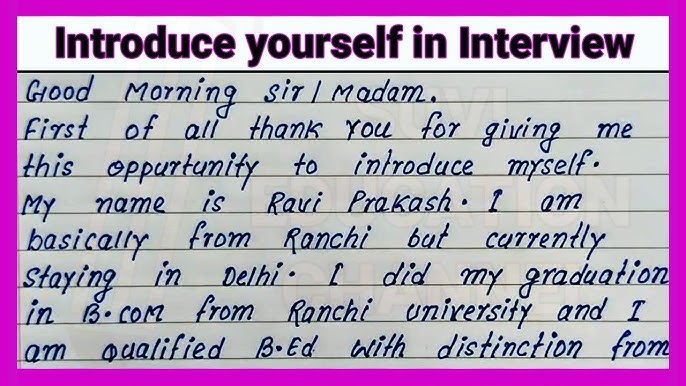 Introduce yourself in Interview
Good Morning Sir / Madam.
First of all thank you for giving me
this oppurtunity to introduce myself.
My name is Ravi Prakash. I am
basically from Ranchi but currently
Staying in Delhi. I did my graduation
in B.com from Ranchi university and I
am qualified B.Ed with distinction from
SUVI
EDUCATION
CHANNEL